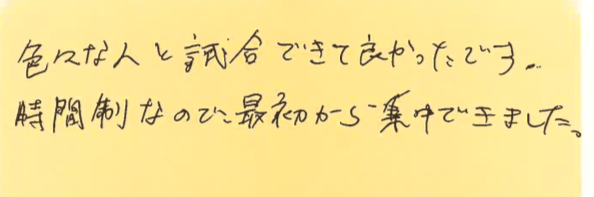 色々な人と試合できて良かったです。
時間制なので最初から集中できました。